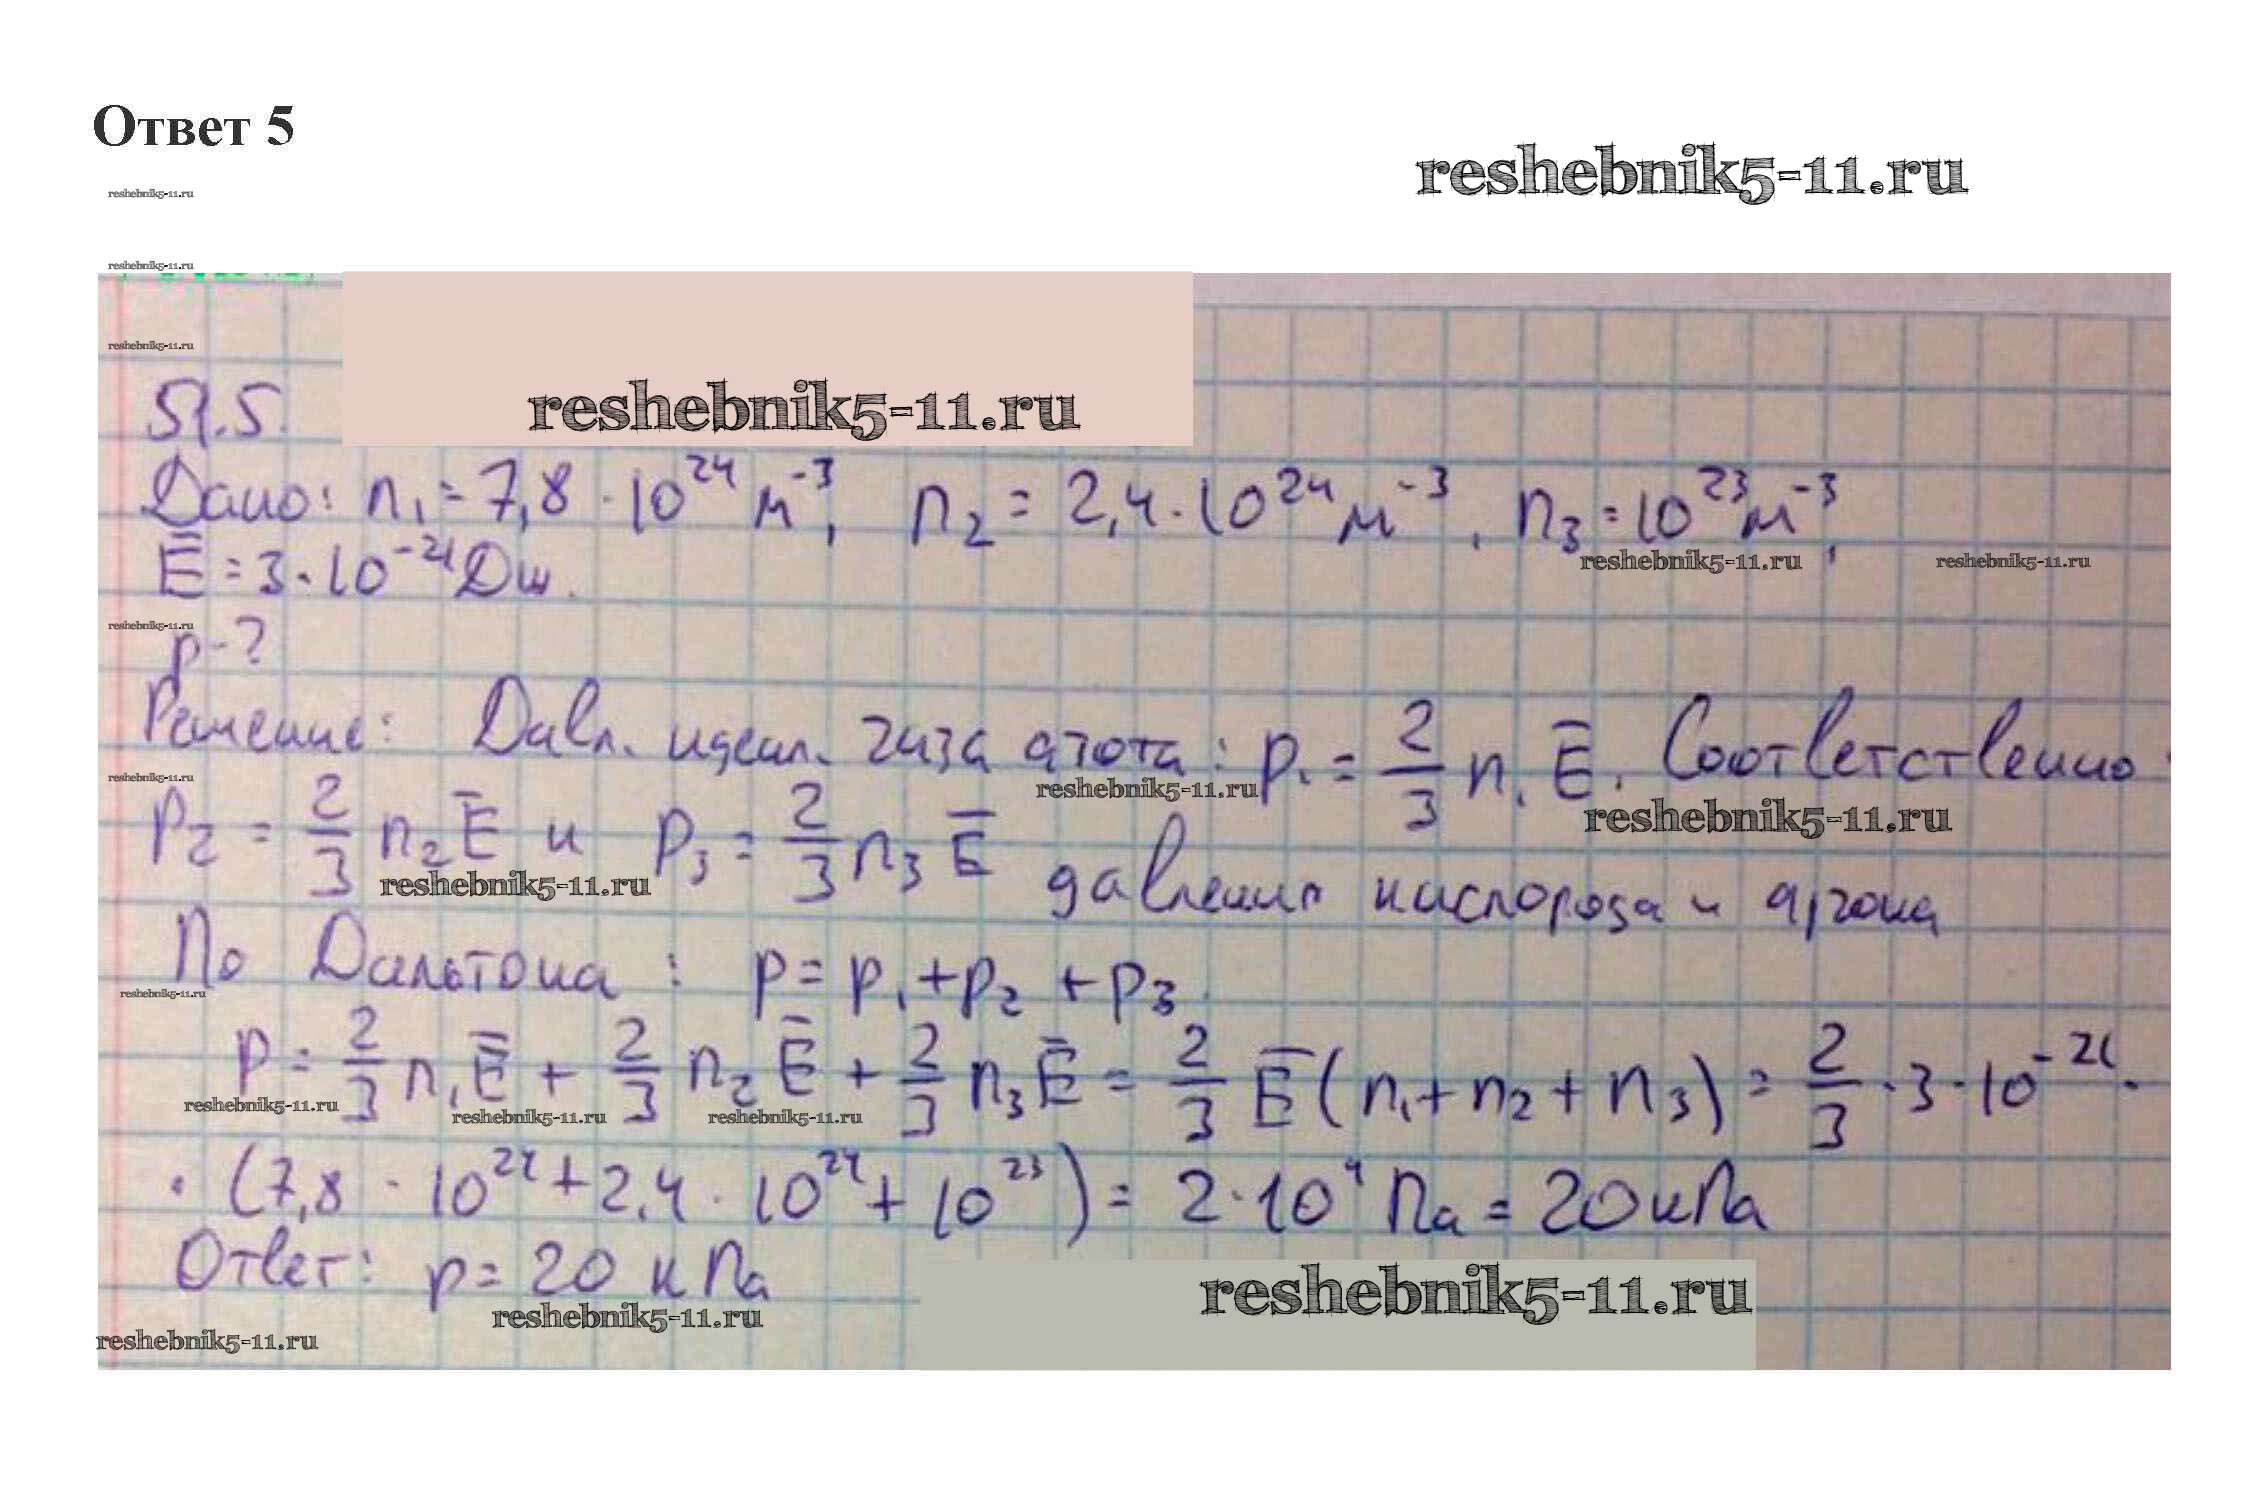 Ответ 5
reshebnik5-11.ru
reshebnik5-11.ru
reshebnik5-11.ru
reshebnik5-11.ru
reshebnik5-11.ru
Я.5.
Дано: n₁ = 7,8 · 10²⁴ м⁻³, n₂ = 2,4 · 10²⁴ м⁻³, n₃ = 10²³ м⁻³,
reshebnik5-11.ru reshebnik5-11.ru
E̅ = 3 · 10⁻²¹ Дж.
reshebnik5-11.ru
p - ?
Решение: Давл. идеал. газа азота: p₁ = 2/3 n₁ E̅. Соответственно
reshebnik5-11.ru reshebnik5-11.ru reshebnik5-11.ru
p₂ = 2/3 n₂ E̅ и p₃ = 2/3 n₃ E̅ давления кислорода и аргона
reshebnik5-11.ru
По Дальтона: p = p₁ + p₂ + p₃.
reshebnik5-11.ru
p = 2/3 n₁ E̅ + 2/3 n₂ E̅ + 2/3 n₃ E̅ = 2/3 E̅ (n₁ + n₂ + n₃) = 2/3 · 3 · 10⁻²¹ ·
reshebnik5-11.ru reshebnik5-11.ru reshebnik5-11.ru
· (7,8 · 10²⁴ + 2,4 · 10²⁴ + 10²³) = 2 · 10⁴ Па = 20 кПа
Ответ: p = 20 кПа
reshebnik5-11.ru
reshebnik5-11.ru
reshebnik5-11.ru